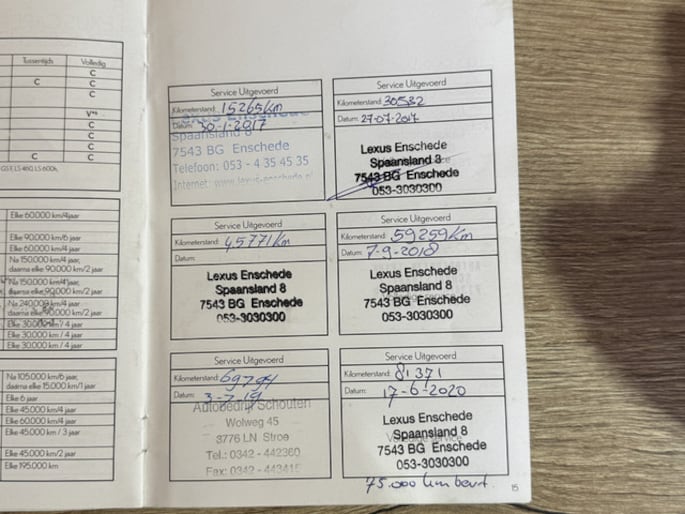 Tussentijds Volledig
C
C C
C
V**
C
C
C
C C
GS F, LS 460, LS 600h,
Elke 60.000 km/4 jaar
Elke 90.000 km/6 jaar
Elke 60.000 km/4 jaar
Na 150.000 km/4 jaar,
daarna elke 90.000 km/2 jaar
Na 150.000 km/4 jaar,
daarna elke 90.000 km/2 jaar
Na 240.000 km/4 jaar
daarna elke 90.000 km/2 jaar
Elke 30.000 km / 4 jaar
Elke 30.000 km / 4 jaar
Elke 30.000 km / 4 jaar
Na 105.000 km/6 jaar,
daarna elke 15.000 km/1 jaar
Elke 6 jaar
Elke 45.000 km/4 jaar
Elke 60.000 km/4 jaar
Elke 45.000 km / 3 jaar
Elke 45.000 km/2 jaar
Elke 195.000 km
Service Uitgevoerd
Kilometerstand: 15265km
Datum: 30-1-2017
Lexus Enschede
Spaansland 8
7543 BG Enschede
Telefoon: 053 - 4 35 45 35
Internet: www.lexus-enschede.nl
Service Uitgevoerd
Kilometerstand: 30532
Datum: 27-07-2017
Lexus Enschede
Spaansland 8
7543 BG Enschede
053-3030300
Service Uitgevoerd
Kilometerstand: 45771km
Datum:
Lexus Enschede
Spaansland 8
7543 BG Enschede
053-3030300
Service Uitgevoerd
Kilometerstand: 59259km
Datum: 7-9-2018
Lexus Enschede
Spaansland 8
7543 BG Enschede
053-3030300
Service Uitgevoerd
Kilometerstand: 69794
Datum: 3-7-19
Autobedrijf Schouten
Wolweg 45
3776 LN Stroe
Tel.: 0342 - 442360
Fax: 0342 - 443415
Service Uitgevoerd
Kilometerstand: 81371
Datum: 17-6-2020
Lexus Enschede
Spaansland 8
7543 BG Enschede
053-3030300
75.000 km beurt.
15